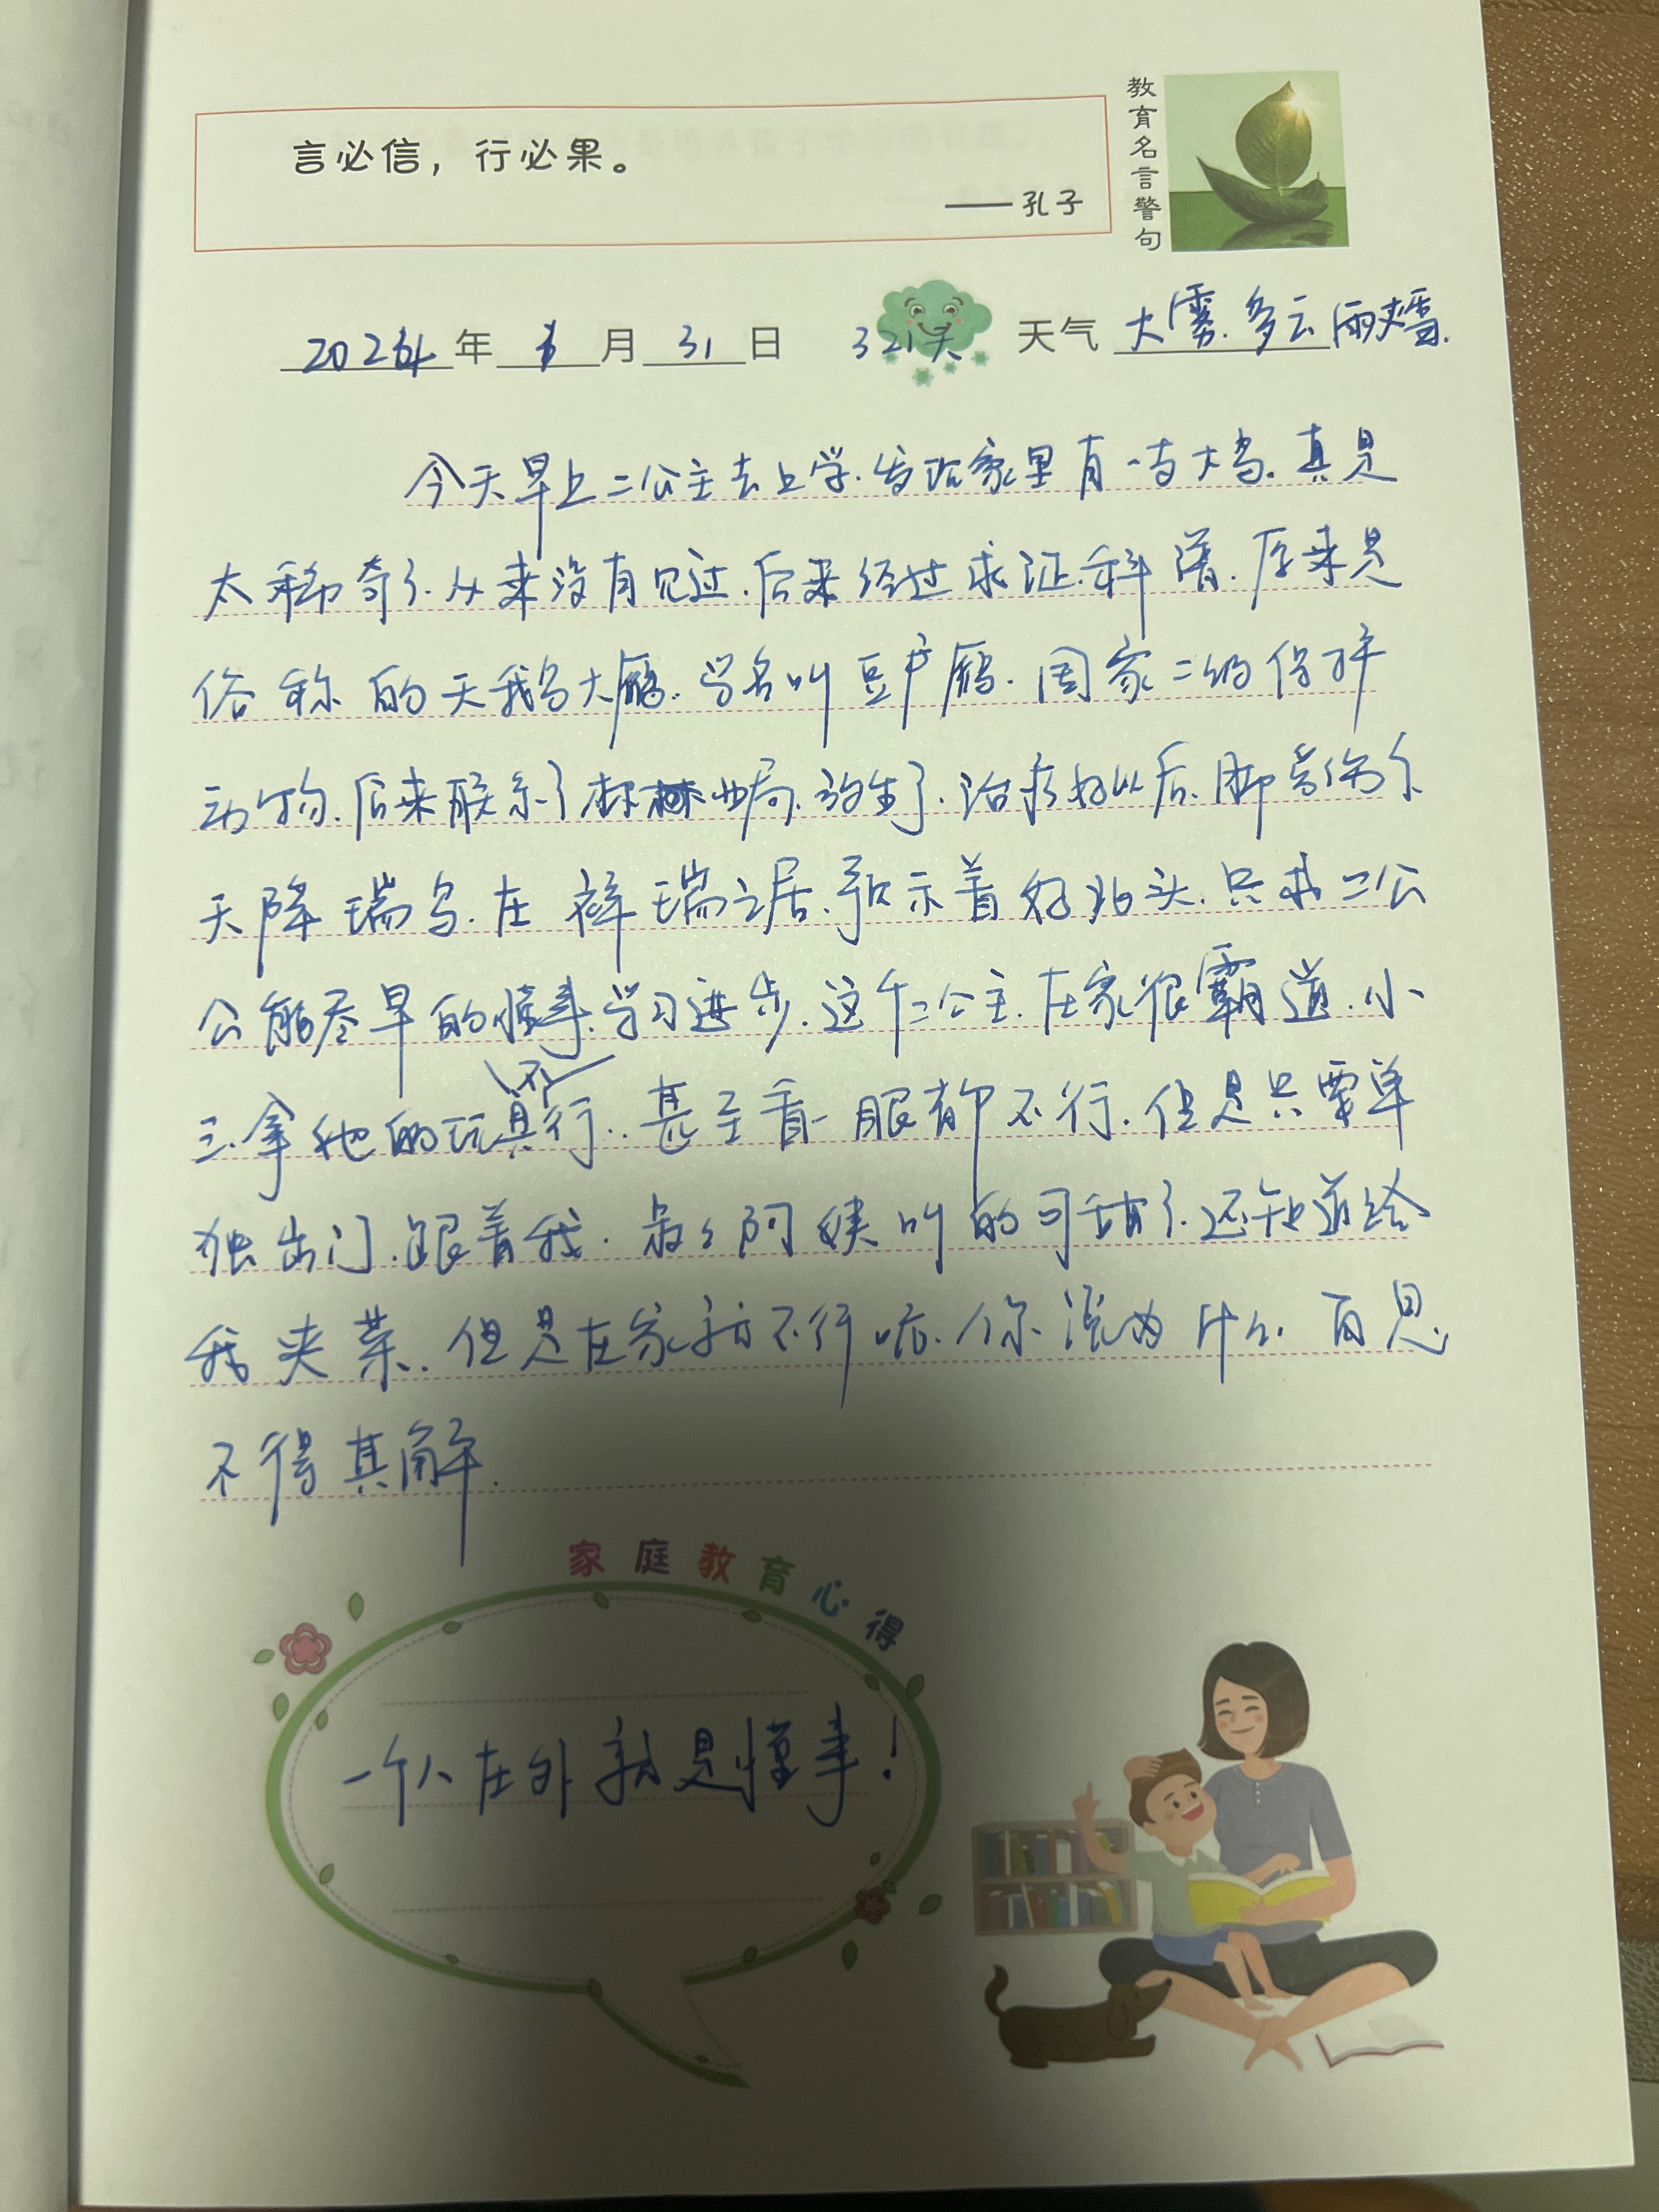 言必信，行必果。
——孔子
教育名言警句
2024年1月31日 321天 天气 大雾.多云雨夹雪.
今天早上二公主去上学.发现家里有一支大鸟.真是
太稀奇了.从来没有见过.后来经过求证.科谱.原来是
俗称的天鹅大雁.学名叫豆雁.国家二级保护
动物.后来联系了林业局.放生了.治疗好以后.脚受伤了
天降瑞鸟.在祥瑞之居.预示着好兆头.只求二公
公能尽早的懂事.学习进步.这个二公主.在家很霸道.小
三.拿他的玩具不行..甚至看一眼都不行.但是只要单
独出门.跟着我.叔叔阿姨叫的可甜了.还知道给
我夹菜.但是在家就不行啦.你说为什么.百思
不得其解.
家庭教育心得
一个人在外就是懂事！